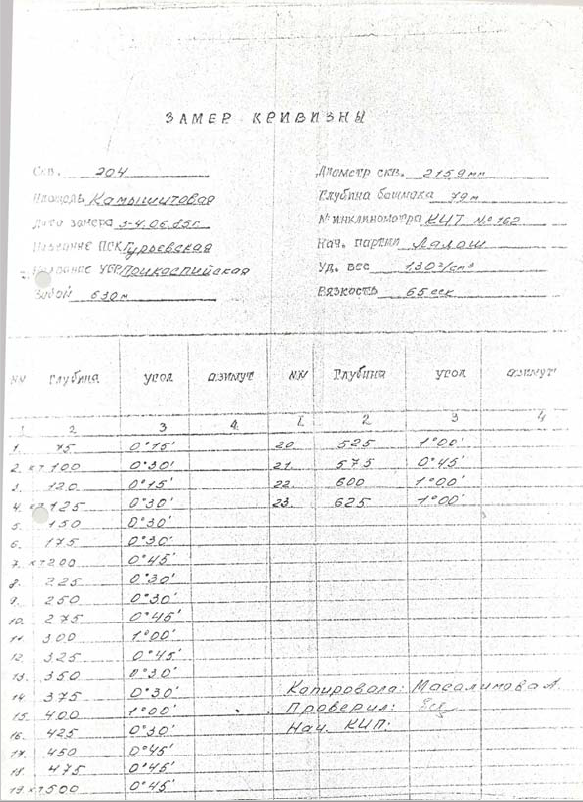 ЗАМЕР КРИВИЗНЫ
Скв. 204
Площадь Камышитовая
Дата замера 3-4.06.85г.
Название ПСК Гурьевская
Название УБР Прикаспийская
Забой 630м
Диаметр скв. 215,9мм
Глубина башмака 79м
№ инклинометра КИТ № 162
Нач. партии Лалош
Уд. вес 1,30 г/см³
Вязкость 65 сек
NN Глубина угол азимут NN Глубина угол азимут
1 2 3 4 1. 2 3 4
1. 75 0°15' 20. 525 1°00'
2. кт 100 0°30' 21. 575 0°45'
3. 120 0°15' 22. 600 1°00'
4. кт 125 0°30' 23. 625 1°00'
5. 150 0°30'
6. 175 0°30'
7. кт 200 0°45'
8. 225 0°30'
9. 250 0°30'
10. 275 0°45'
11. 300 1°00'
12. 325 0°45'
13. 350 0°30'
14. 375 0°30'
15. 400 1°00'
16. 425 0°30'
17. 450 0°45'
18. 475 0°45'
19. кт 500 0°45'
Копировала: Масалимова А.
Проверил:
Нач. КИП: